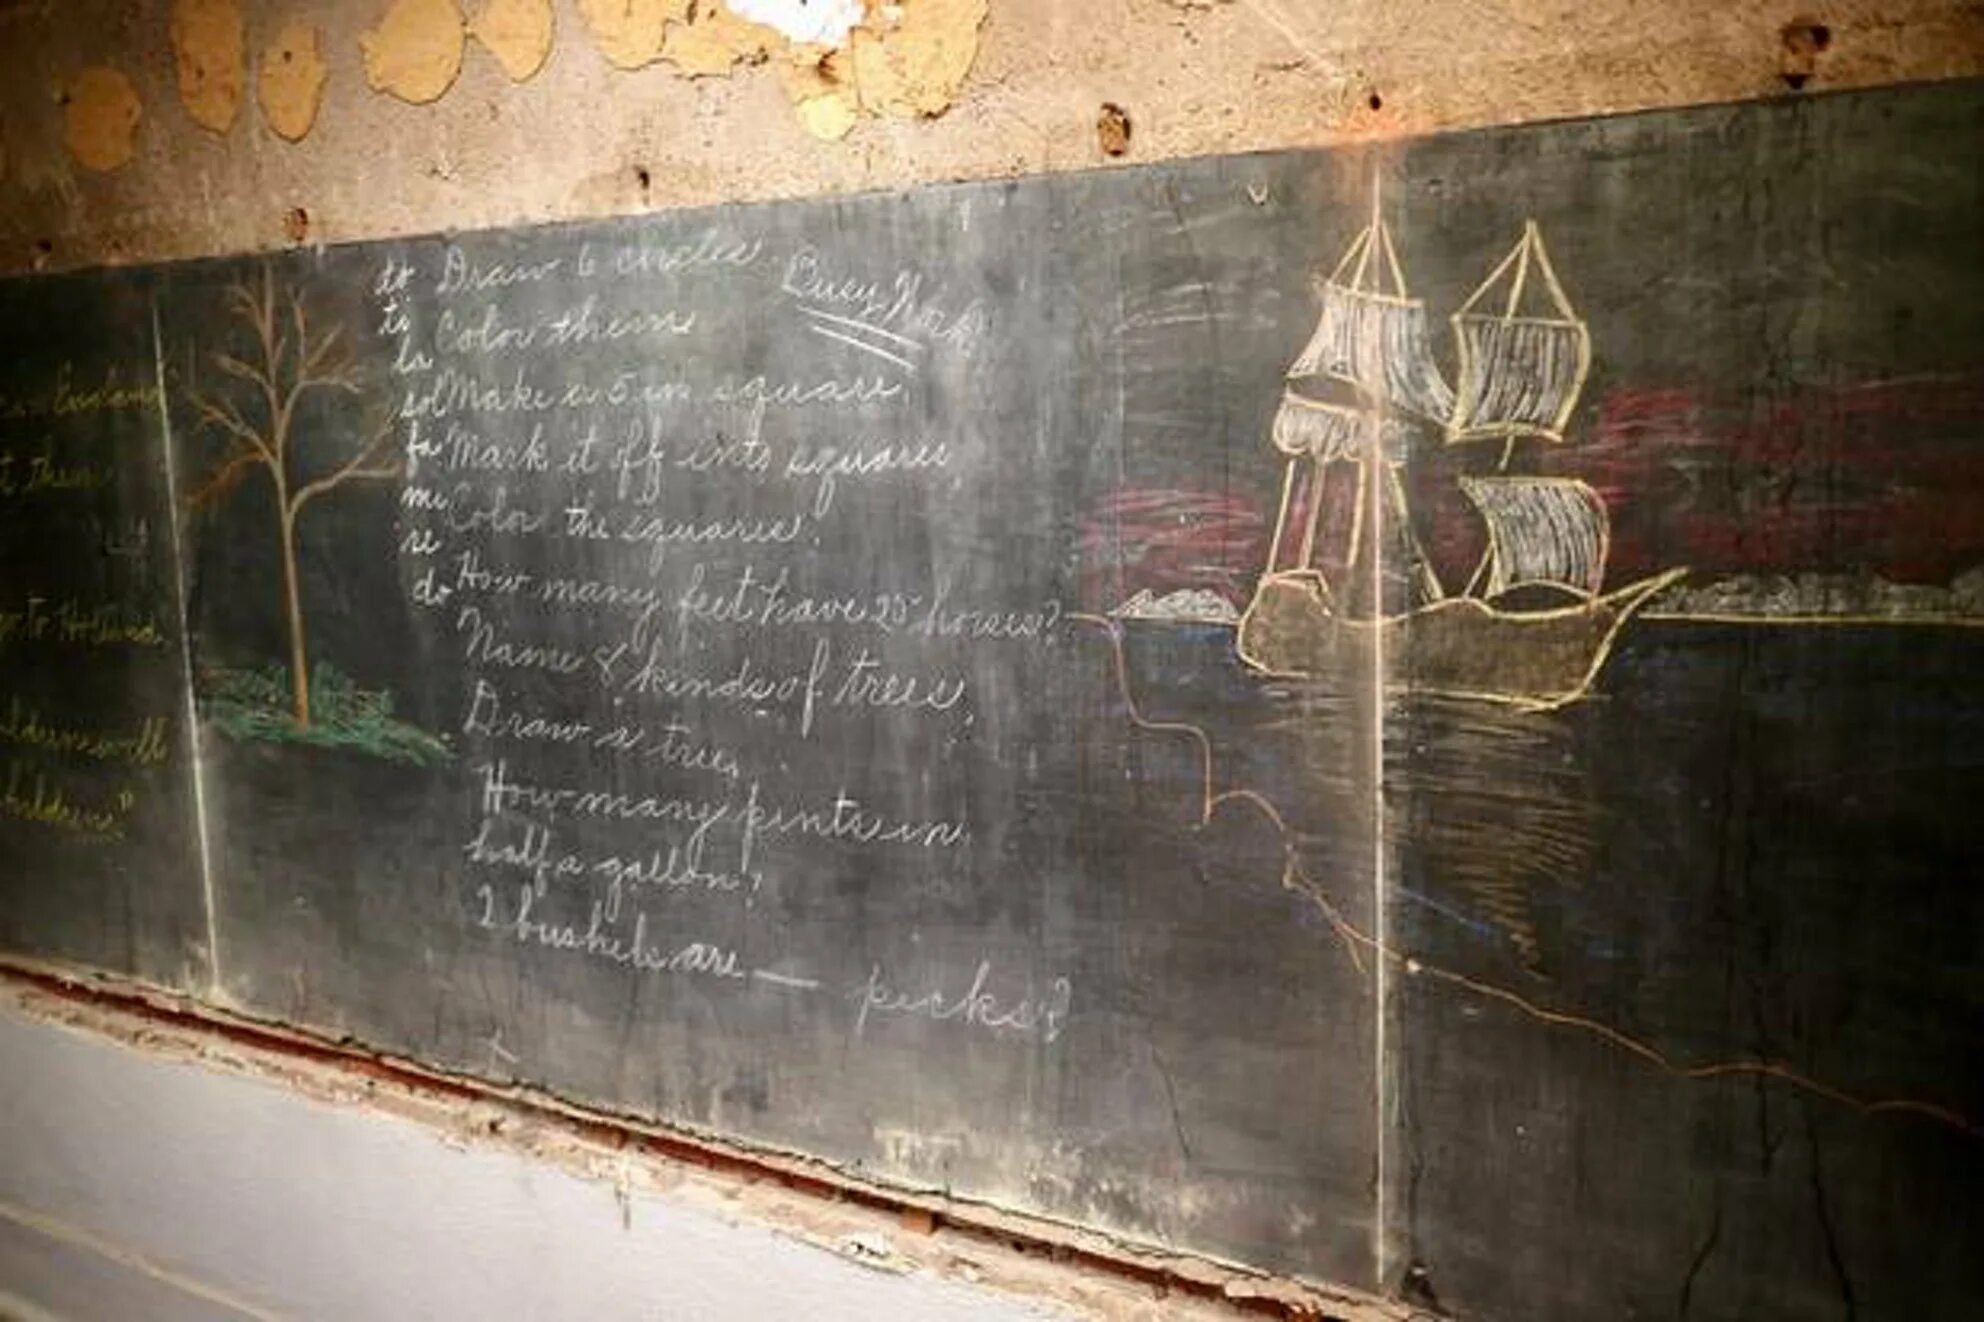 England
t them
go to Holland
do
ti
la
sol
fa
mi
re
do
Draw 6 circles.
Color them
Make a 5 in square.
Mark it off into squares.
Color the squares.
How many feet have 25 horses?
Name 8 kinds of trees.
Draw a tree.
How many pints in
half a gallon?
2 bushels are — pecks?
Busy Work